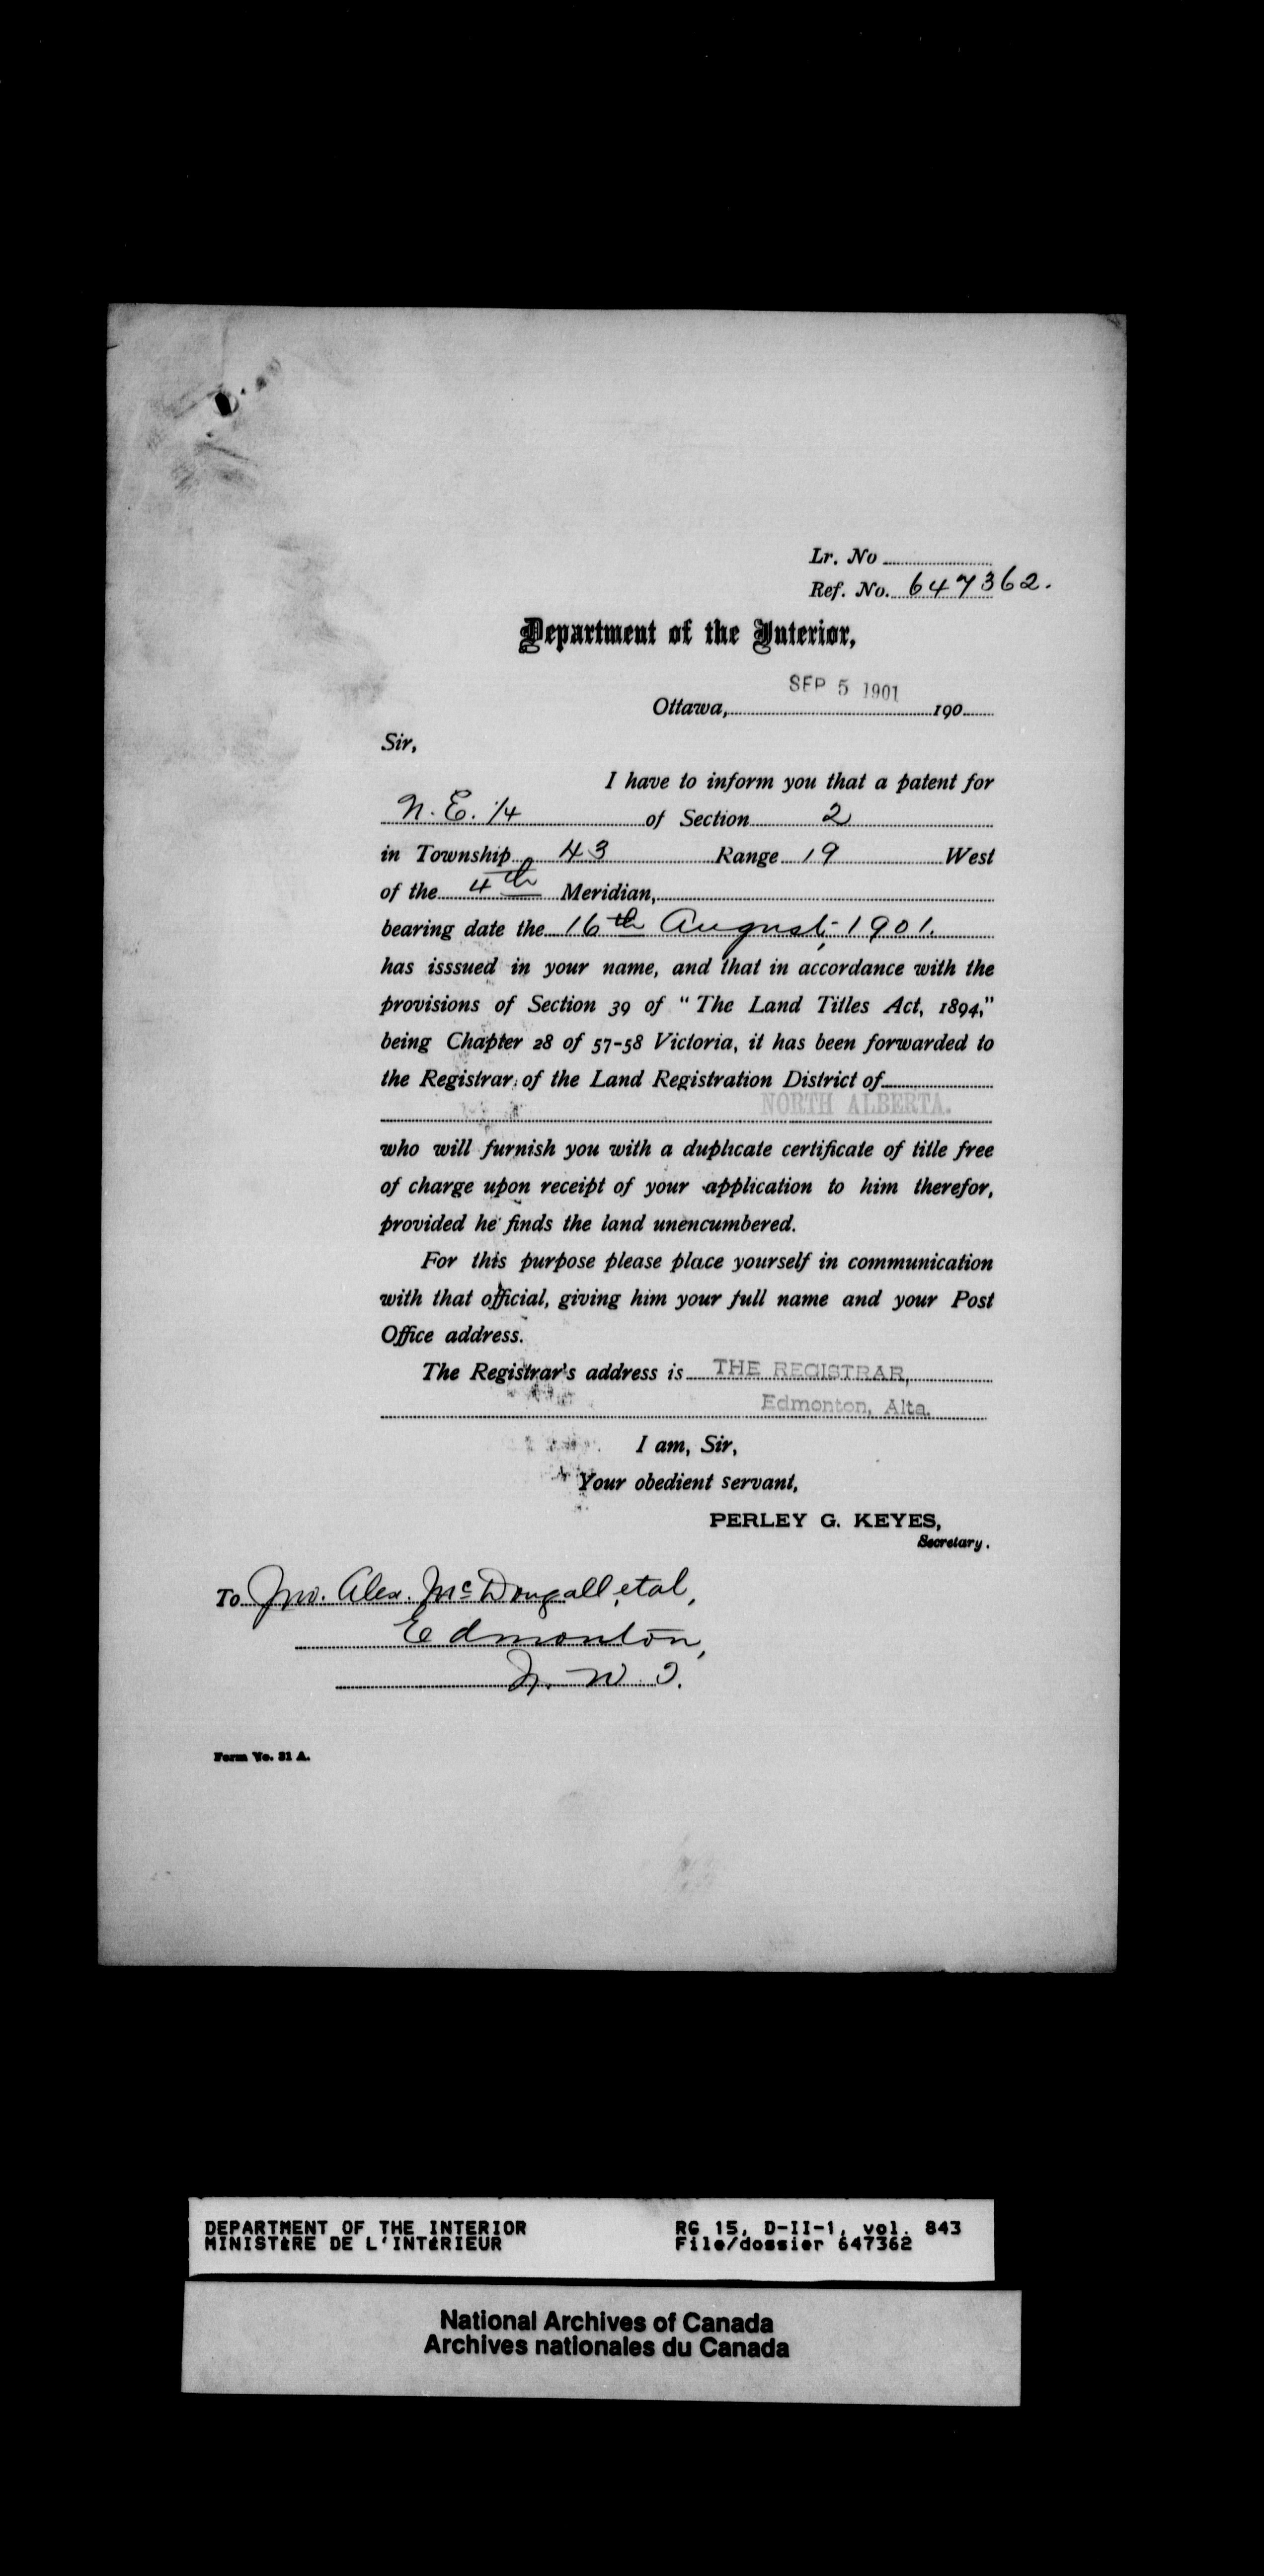 Lr. No
Ref. No. 647362.
Department of the Interior,
SEP 5 1901
Ottawa, 190
Sir,
I have to inform you that a patent for
N. E. 1/4 of Section 2
in Township 43 Range 19 West
of the 4th Meridian,
bearing date the 16th August, 1901.
has isssued in your name, and that in accordance with the
provisions of Section 39 of “The Land Titles Act, 1894,”
being Chapter 28 of 57-58 Victoria, it has been forwarded to
the Registrar of the Land Registration District of
NORTH ALBERTA.
who will furnish you with a duplicate certificate of title free
of charge upon receipt of your application to him therefor,
provided he finds the land unencumbered.
For this purpose please place yourself in communication
with that official, giving him your full name and your Post
Office address.
The Registrar's address is THE REGISTRAR,
Edmonton, Alta.
I am, Sir,
Your obedient servant,
PERLEY G. KEYES,
Secretary.
To Jno. Alex. McDougall, et al,
Edmonton,
N. W. T.
Form No. 31 A.
DEPARTMENT OF THE INTERIOR RG 15, D-II-1, vol. 843
MINISTÈRE DE L'INTÉRIEUR File/dossier 647362
National Archives of Canada
Archives nationales du Canada